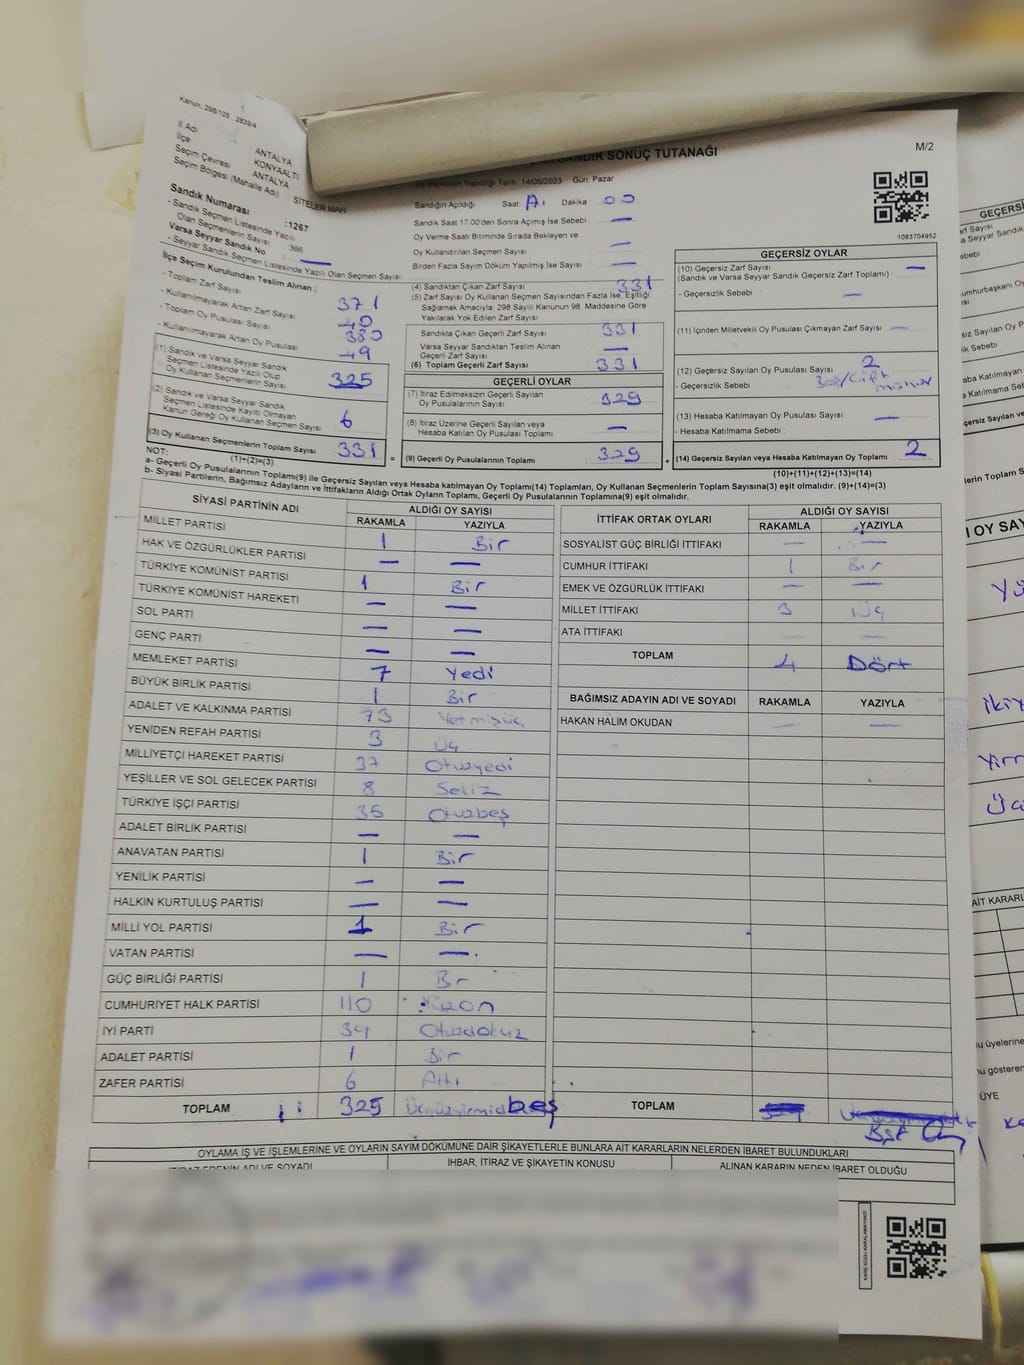 Kanun: 298/105 - 2839/4
M/2
SANDIK SONUÇ TUTANAĞI
İl Adı ANTALYA
İlçe KONYAALTI
Seçim Çevresi ANTALYA
Seçim Bölgesi (Mahalle Adı) SİTELER MAH
Sandık Numarası :1267
- Sandık Seçmen Listesinde Yazılı
Olan Seçmenlerin Sayısı 366
Varsa Seyyar Sandık No —
- Seyyar Sandık Seçmen Listesinde Yazılı Olan Seçmen Sayısı
İlçe Seçim Kurulundan Teslim Alınan :
- Toplam Zarf Sayısı 371
- Kullanılmayarak Artan Zarf Sayısı 40
- Toplam Oy Pusulası Sayısı 380
- Kullanılmayarak Artan Oy Pusulası 49
(1) Sandık ve Varsa Seyyar Sandık
Seçmen Listesinde Yazılı Olup
Oy Kullanan Seçmenlerin Sayısı 325
(2) Sandık ve Varsa Seyyar Sandık
Seçmen Listesinde Kayıtlı Olmayan
Kanun Gereği Oy Kullanan Seçmen Sayısı 6
(3) Oy Kullanan Seçmenlerin Toplam Sayısı 331
(1)+(2)=(3)
Oy Vermenin Yapıldığı Tarih: 14/05/2023 Gün: Pazar
Sandığın Açıldığı Saat Dakika 00
Sandık Saat 17:00'den Sonra Açılmış İse Sebebi —
Oy Verme Saati Bitiminde Sırada Bekleyen ve
Oy Kullandırılan Seçmen Sayısı —
Birden Fazla Sayım Döküm Yapılmış İse Sayısı —
(4) Sandıktan Çıkan Zarf Sayısı 331
(5) Zarf Sayısı Oy Kullanan Seçmen Sayısından Fazla İse, Eşitliği
Sağlamak Amacıyla; 298 Sayılı Kanunun 98. Maddesine Göre
Yakılarak Yok Edilen Zarf Sayısı
Sandıkta Çıkan Geçerli Zarf Sayısı 331
Varsa Seyyar Sandıktan Teslim Alınan
Geçerli Zarf Sayısı —
(6) Toplam Geçerli Zarf Sayısı 331
GEÇERLİ OYLAR
(7) İtiraz Edilmeksizin Geçerli Sayılan
Oy Pusulalarının Sayısı 329
(8) İtiraz Üzerine Geçerli Sayılan veya
Hesaba Katılan Oy Pusulası Toplamı —
= (9) Geçerli Oy Pusulalarının Toplamı 329 +
1083704952
GEÇERSİZ OYLAR
(10) Geçersiz Zarf Sayısı —
(Sandık ve Varsa Seyyar Sandık Geçersiz Zarf Toplamı)
- Geçersizlik Sebebi : —
(11) İçinden Milletvekili Oy Pusulası Çıkmayan Zarf Sayısı —
(12) Geçersiz Sayılan Oy Pusulası Sayısı 2
- Geçersizlik Sebebi :
(13) Hesaba Katılmayan Oy Pusulası Sayısı —
- Hesaba Katılmama Sebebi :
(14) Geçersiz Sayılan veya Hesaba Katılmayan Oy Toplamı 2
(10)+(11)+(12)+(13)=(14)
NOT:
a- Geçerli Oy Pusulalarının Toplamı(9) ile Geçersiz Sayılan veya Hesaba katılmayan Oy Toplamı(14) Toplamları, Oy Kullanan Seçmenlerin Toplam Sayısına(3) eşit olmalıdır. (9)+(14)=(3)
b- Siyasi Partilerin, Bağımsız Adayların ve İttifakların Aldığı Ortak Oyların Toplamı, Geçerli Oy Pusulalarının Toplamına(9) eşit olmalıdır.
SİYASİ PARTİNİN ADI ALDIĞI OY SAYISI
RAKAMLA YAZIYLA
MİLLET PARTİSİ 1 Bir
HAK VE ÖZGÜRLÜKLER PARTİSİ — —
TÜRKİYE KOMÜNİST PARTİSİ 1 Bir
TÜRKİYE KOMÜNİST HAREKETİ — —
SOL PARTİ — —
GENÇ PARTİ — —
MEMLEKET PARTİSİ 7 Yedi
BÜYÜK BİRLİK PARTİSİ 1 Bir
ADALET VE KALKINMA PARTİSİ 73 Yetmişüç
YENİDEN REFAH PARTİSİ 3 Üç
MİLLİYETÇİ HAREKET PARTİSİ 37 Otuzyedi
YEŞİLLER VE SOL GELECEK PARTİSİ 8 Sekiz
TÜRKİYE İŞÇİ PARTİSİ 35 Otuzbeş
ADALET BİRLİK PARTİSİ — —
ANAVATAN PARTİSİ 1 Bir
YENİLİK PARTİSİ — —
HALKIN KURTULUŞ PARTİSİ — —
MİLLİ YOL PARTİSİ 1 Bir
VATAN PARTİSİ — —
GÜÇ BİRLİĞİ PARTİSİ 1 Bir
CUMHURİYET HALK PARTİSİ 110 Yüzon
İYİ PARTİ 39 Otuzdokuz
ADALET PARTİSİ 1 Bir
ZAFER PARTİSİ 6 Altı
TOPLAM 325 Üçyüzyirmibeş
İTTİFAK ORTAK OYLARI ALDIĞI OY SAYISI
RAKAMLA YAZIYLA
SOSYALİST GÜÇ BİRLİĞİ İTTİFAKI — —
CUMHUR İTTİFAKI 1 Bir
EMEK VE ÖZGÜRLÜK İTTİFAKI — —
MİLLET İTTİFAKI 3 Üç
ATA İTTİFAKI — —
TOPLAM 4 Dört
BAĞIMSIZ ADAYIN ADI VE SOYADI RAKAMLA YAZIYLA
HAKAN HALİM OKUDAN — —
TOPLAM
OYLAMA İŞ VE İŞLEMLERİNE VE OYLARIN SAYIM DÖKÜMÜNE DAİR ŞİKAYETLERLE BUNLARA AİT KARARLARIN NELERDEN İBARET BULUNDUKLARI
İTİRAZ EDENİN ADI VE SOYADI İHBAR, İTİRAZ VE ŞİKAYETİN KONUSU ALINAN KARARIN NEDEN İBARET OLDUĞU